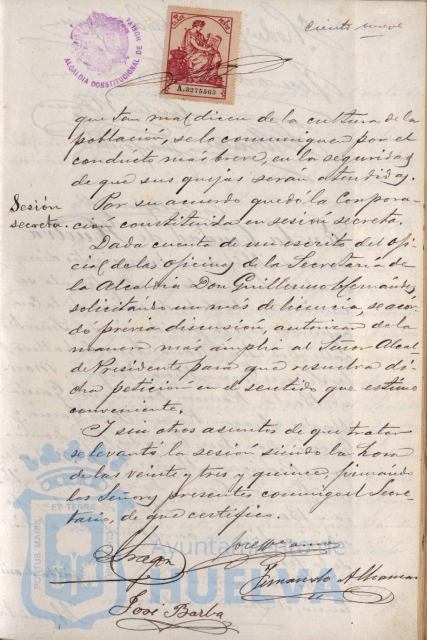 ciento nueve
ALCALDIA CONSTITUCIONAL DE
A.3275563
que tan mal dicen de la cultura de la
población, se lo comuniquen por el
conducto más breve, en la seguridad
de que sus quejas serán atendidas.
Sesión
secreta.
Por su acuerdo quedó la Corpora-
ción constituida en sesión secreta.
Dada cuenta de un escrito del ofi-
cial de las oficinas de la Secretaría de
la Alcaldía Don Guillermo Hernández
solicitando un mes de licencia, se acor-
dó prévia discusión, autorizar de la
manera más amplia al Señor Alcal-
de Presidente para que resuelva di-
cha petición en el sentido que estime
conveniente.
I sin otros asuntos de que tratar
se levantó la sesión siendo la hora
de las veinte y tres y quince, firmando
los Señores presentes conmigo el Secre-
tario, de que certifico.
Aragón
José
Fernando
José Barba
PORTUS MARIS
ET TERRAE
Ayuntamiento de
HUELVA